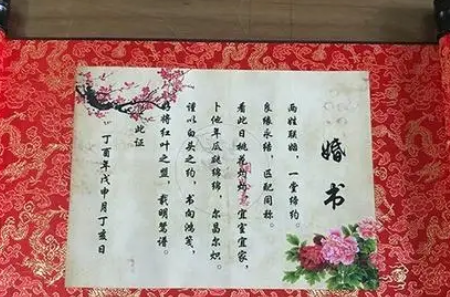 婚书
两姓联姻，一堂缔约。
良缘永结，匹配同称。
看此日桃花灼灼，宜室宜家，
卜他年瓜瓞绵绵，尔昌尔炽。
谨以白头之约，书向鸿笺，
将红叶之盟，载明鸳谱。
此证
丁酉年戊申月丁亥日